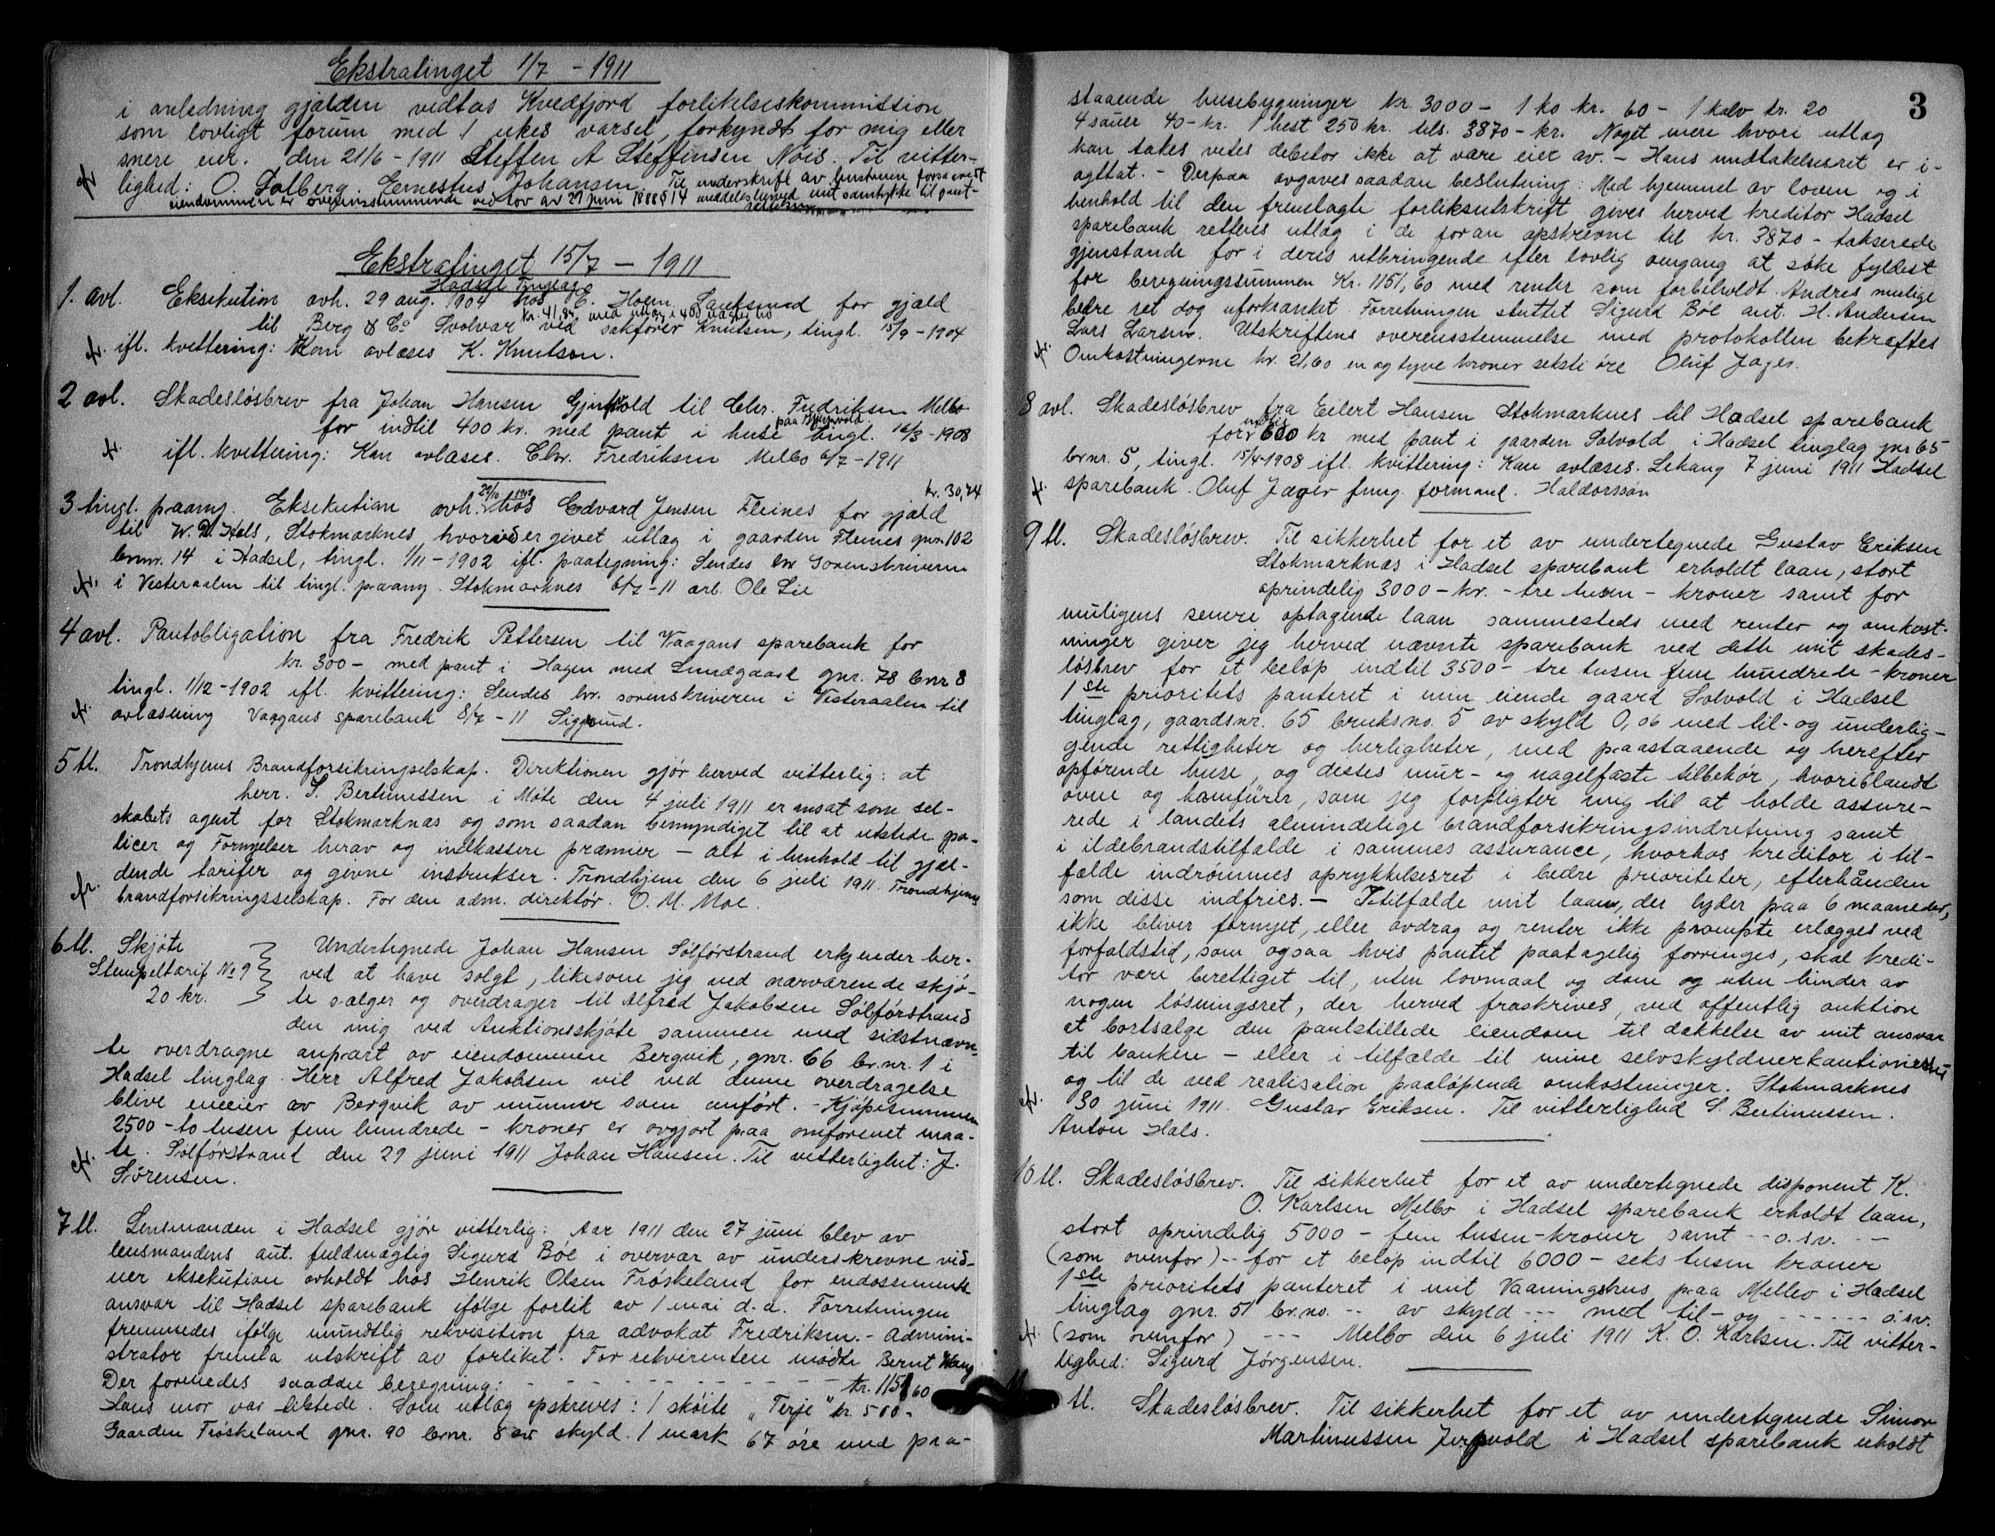 Ekstratinget 1/7 - 1911
i anledning gjælden vedtas Kvedfjord forlikelseskommission
som lovligt forum med 1 ukes varsel, forkyndt for mig eller
mere eier. den 21/6 - 1911 Steffen A Steffensen Nois. Til vitter-
lighed: O. Solberg. Ernestus Johansen. Til underskrift av hustruen forsaavidt
eiendommen er overensstemmende ved lov av 29 juni 1888 § 14 meddeles herved mit samtykke til pant-
Ekstratinget 15/7 - 1911
Hadsel Tinglag
1. avl. Eksekution avh. 29 aug. 1904 hos E. Hoem Sauksmed for gjæld
kr. 41,85 med utlæg i
til Berg & Co Svolvær ved sakfører Knutsen, tingl. 15/9 - 1904
ifl. kvittering: Kan avlæses K. Knutsen.
2 avl. Skadesløsbrev fra Johan Hansen Gjerfvold til Chr. Fredriksen Melbo
for indtil 400 kr. med pant i huse paa Gjerfvold tingl. 16/3 - 1908
ifl. kvittering: Kan avlæses. Chr. Fredriksen Melbo 6/7 - 1911
kr. 30,74
3 tingl. paaanmg. Eksekution avh. 29/10 1902 hos Edvard Jensen Fleines for gjæld
til W. D. Hals, Stokmarknes hvorved er givet utlæg i gaarden Fleines gnr. 102
brnr. 14 i Hadsel, tingl. 1/11 - 1902 ifl. paategning: Sendes hr Sorenskriveren
i Vesteraalen til tingl. paaanmg. Stokmarknes 6/7 - 11 arb. Ole Lie
4 avl. Pantobligation fra Fredrik Pettersen til Vaagans sparebank for
kr. 300 - med pant i Hagen med Smedgaard gnr. 78 bnr 8
tingl. 1/12 - 1902 ifl. kvittering: Sendes hr. sorenskriveren i Vesteraalen til
avlæsning Vaagans sparebank 8/7 - 11 Sigmund.
5 tl. Trondhjems Brandforsikringselskap. Direktionen gjør herved vitterlig: at
herr. S. Bertinussen i Møte den 4 juli 1911 er ansat som sel-
skabets agent for Stokmarknæs og som saadan bemyndiget til at utstede po-
licer og Fornyelser herav og indkassere præmier - alt i henhold til gjæl-
dende tarifer og givne instrukser. Trondhjem den 6 juli 1911. Trondhjems
brandforsikringsselskap. For den adm. direktør. O. M. Moe.
6 tl. Skjøte Undertegnede Johan Hansen Sølførstrand erkjender her-
Stempeltarif No 9 ved at have solgt, likesom jeg ved nærværende skjø-
20 kr. te sælger og overdrager til Alfred Jakobsen Sølførstrand
den mig ved Auktionsskjøte sammen med sidstnævn-
te overdragne anpart av eiendommen Bergvik, gnr. 66 br.nr. 1 i
Hadsel tinglag. Herr Alfred Jakobsen vil ved denne overdragelse
blive eneeier av Bergvik av nummer som anført. - Kjøpesummen
2500 - to tusen fem hundrede - kroner er avgjort paa omforenet maa-
te. Sølførstrand den 29 juni 1911 Johan Hansen. Til vitterlighet: J.
Sørensen.
7 tl. Lensmanden i Hadsel gjør vitterlig: Aar 1911 den 27 juni blev av
lensmandens aut. fuldmægtig Sigurd Bøe i overvær av underskrevne vid-
ner eksekution avholdt hos Henrik Olsen Frøskeland for endossements
ansvar til Hadsel sparebank ifølge forlik av 1 mai d.a. Forretningen
fremmedes ifølge mundtlig rekvisition fra advokat Fredriksen. - Admini-
strator fremla utskrift av forliket. For rekvirenten møtte Bernt Wang
Der formedes saadan beregning: - - - - - - - - kr. 1151,60
Hans mor var tilstede. Som utlæg opskreves: 1 skøite "Terje" kr. 500 -
Gaarden Frøskeland gnr. 90 brnr. 8 av skyld. 1 mark 67 øre med paa-
3
staaende husebygninger kr. 3000 - 1 ko kr. 60 - 1 kalv kr. 20
4 sauer 40 - kr. 1 hest 250 kr. tils. 3870 - kr. Noget mere hvori utlæg
kan takes vites debitor ikke at være eier av. - Hans undtakelsesret er i-
agttat. - Derpaa avgaves saadan beslutning: Med hjemmel av loven og i
henhold til den fremlagte forliksutskrift gives herved kreditor Hadsel
sparebank rettens utlæg i de foran opskrevne til kr. 3870 - takserede
gjenstande for i deris utbringende efter lovlig omgang at søke fyldest
for beregningssummen Kr. 1151,60 med renter som forbeholdt. Andres mulige
bedre ret dog uforkrænket. Forretningen sluttet Sigurd Bøe aut. H. Andersen
Lars Larsen. Utskriftens overensstemmelse med protokollen bekræftes
Omkostningerne kr. 21,60 en og tyve kroner seksti øre Oluf Jæger.
8 avl. Skadesløsbrev fra Eilert Hansen Stokmarknes til Hadsel sparebank
for indtil 600 kr med pant i gaarden Solvold i Hadsel tinglag gnr 65
brnr. 5, tingl. 15/4 - 1908 ifl. kvittering: Kan avlæses. Lekang 7 juni 1911 Hadsel
sparebank. Oluf Jæger fung. formand. Haldorssøn
9 tl. Skadesløsbrev. Til sikkerhet for et av undertegnede Gustav Eriksen
Stokmarknæs i Hadsel sparebank erholdt laan, stort
oprindelig 3000 - kr. - tre tusen - kroner samt for
muligens senere optagende laan sammesteds med renter og omkost-
ninger giver jeg herved nævnte sparebank ved dette mit skades-
løsbrev for et beløp indtil 3500 - tre tusen fem hundrede - kroner
1ste prioritets panteret i min eiende gaard Solvold i Hadsel
tinglag, gaardsnr. 65 bruksno. 5 av skyld 0,06 med til- og underlig-
gende rettigheter og herligheter, med paastaaende og herefter
opførende huse, og disses mur- og nagelfaste tilbehør, hvoriblandt
ovne og komfürer, som jeg forpligter mig til at holde assure-
rede i landets almindelige brandforsikringsindretning samt
i ildebrandstilfælde i sammes assurance, hvorhos kreditor i til-
fælde indrømmes oprykkelsesret i bedre prioriteter, efterhånden
som disse indfries. - I tilfælde mit laan, der lyder paa 6 maaneder,
ikke bliver fornyet, eller avdrag og renter ikke prompte erlægges ved
forfaldstid, som ogsaa hvis pantet paatagelig forringes, skal kredi-
tor være berettiget til, uten lovmaal og dom og uten hinder av
nogen løsningsret, der herved fraskrives, ved offentlig auktion
at bortsælge den pantstillede eiendom til dækkelse av mit ansvar
til banken - eller i tilfælde til mine selvskyldnerkautionister
og til de ved realisation paaløpende omkostninger. Stokmarknes
30 juni 1911. Gustav Eriksen. Til vitterlighed S. Bertinussen.
Anton Hals.
10 tl. Skadesløsbrev. Til sikkerhet for et av undertegnede disponent K.
O. Karlsen Melbo i Hadsel sparebank erholdt laan,
stort oprindelig 5000 - fem tusen - kroner samt - - o.s.v. - -
(som ovenfor) - - for et beløp indtil 6000 - seks tusen kroner
1ste prioritets panteret i mit Vaaningshus paa Melbo i Hadsel
tinglag gnr. 51 br.no. - - av skyld - - - med til- og - - - - - o.s.v.
(som ovenfor) - - - Melbo den 6 juli 1911 K. O. Karlsen. Til vitter-
lighed: Sigurd Jørgensen.
11 tl. Skadesløsbrev. Til sikkerhet for et av undertegnede Simon
Martinussen Jerpvold i Hadsel sparebank erholdt